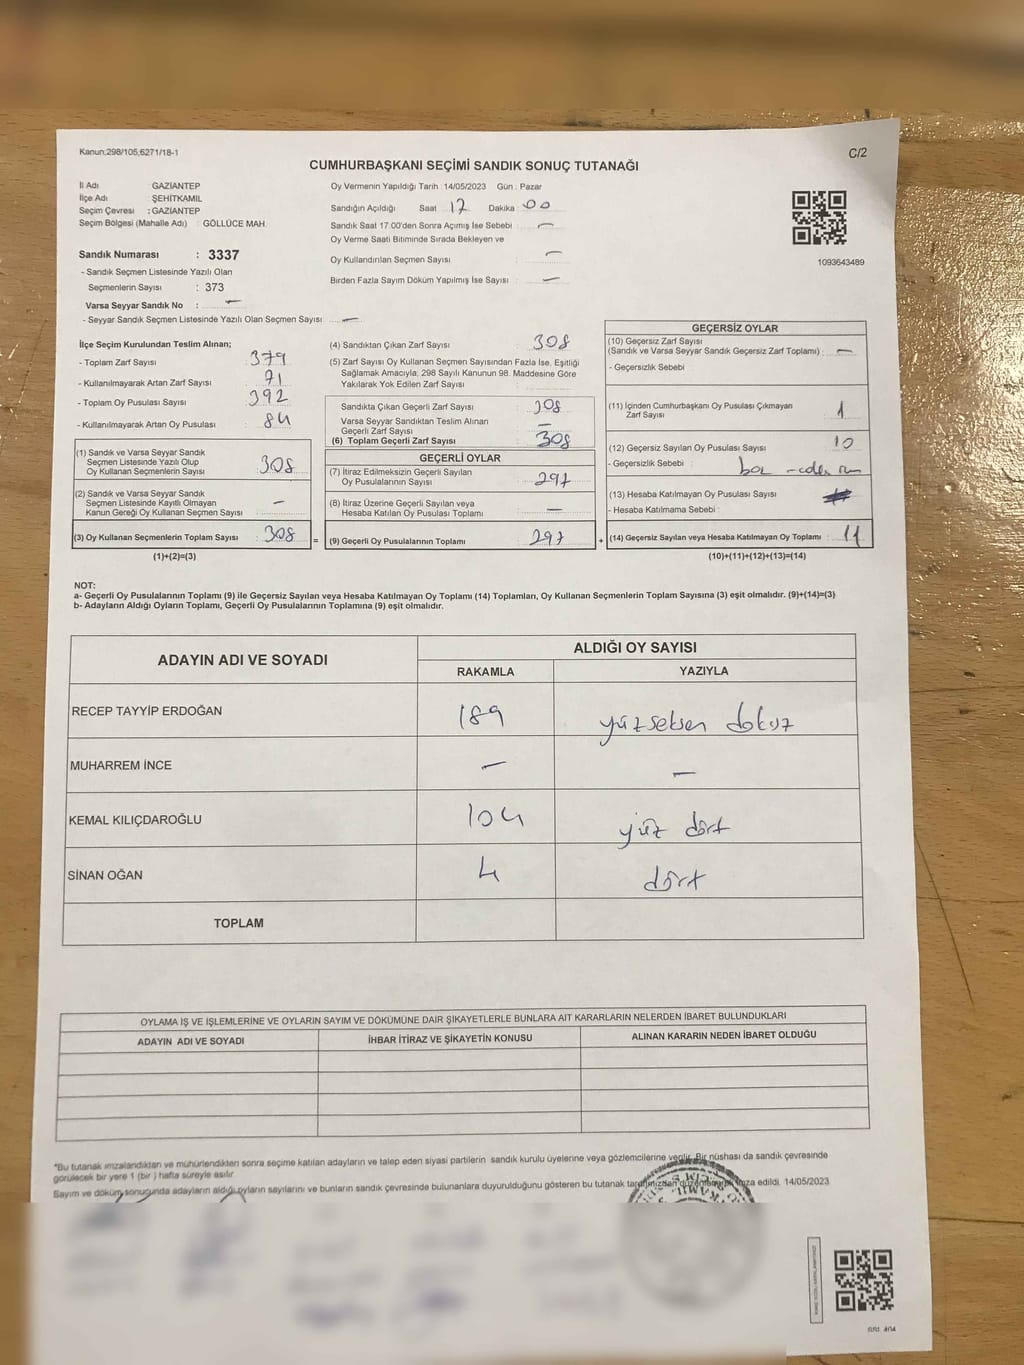 Kanun:298/105,6271/18-1
C/2
CUMHURBAŞKANI SEÇİMİ SANDIK SONUÇ TUTANAĞI
İl Adı : GAZİANTEP
İlçe Adı : ŞEHİTKAMİL
Seçim Çevresi : GAZİANTEP
Seçim Bölgesi (Mahalle Adı) : GÖLLÜCE MAH.
Oy Vermenin Yapıldığı Tarih : 14/05/2023 Gün : Pazar
Sandığın Açıldığı Saat 17 Dakika 00
Sandık Saat 17:00'den Sonra Açımış İse Sebebi : —
Oy Verme Saati Bitiminde Sırada Bekleyen ve
Oy Kullandırılan Seçmen Sayısı : —
Birden Fazla Sayım Döküm Yapılmış İse Sayısı : —
1093643489
Sandık Numarası : 3337
- Sandık Seçmen Listesinde Yazılı Olan
Seçmenlerin Sayısı : 373
Varsa Seyyar Sandık No : —
- Seyyar Sandık Seçmen Listesinde Yazılı Olan Seçmen Sayısı : —
İlçe Seçim Kurulundan Teslim Alınan;
- Toplam Zarf Sayısı : 379
- Kullanılmayarak Artan Zarf Sayısı : 71
- Toplam Oy Pusulası Sayısı : 392
- Kullanılmayarak Artan Oy Pusulası : 84
(1) Sandık ve Varsa Seyyar Sandık
Seçmen Listesinde Yazılı Olup
Oy Kullanan Seçmenlerin Sayısı : 308
(2) Sandık ve Varsa Seyyar Sandık
Seçmen Listesinde Kayıtlı Olmayan
Kanun Gereği Oy Kullanan Seçmen Sayısı : —
(3) Oy Kullanan Seçmenlerin Toplam Sayısı : 308
(1)+(2)=(3)
=
(4) Sandıktan Çıkan Zarf Sayısı : 308
(5) Zarf Sayısı Oy Kullanan Seçmen Sayısından Fazla İse, Eşitliği
Sağlamak Amacıyla; 298 Sayılı Kanunun 98. Maddesine Göre
Yakılarak Yok Edilen Zarf Sayısı :
Sandıkta Çıkan Geçerli Zarf Sayısı : 308
Varsa Seyyar Sandıktan Teslim Alınan
Geçerli Zarf Sayısı : —
(6) Toplam Geçerli Zarf Sayısı : 308
GEÇERLİ OYLAR
(7) İtiraz Edilmeksizin Geçerli Sayılan
Oy Pusulalarının Sayısı : 297
(8) İtiraz Üzerine Geçerli Sayılan veya
Hesaba Katılan Oy Pusulası Toplamı : —
(9) Geçerli Oy Pusulalarının Toplamı : 297
+
GEÇERSİZ OYLAR
(10) Geçersiz Zarf Sayısı
(Sandık ve Varsa Seyyar Sandık Geçersiz Zarf Toplamı) : —
- Geçersizlik Sebebi :
(11) İçinden Cumhurbaşkanı Oy Pusulası Çıkmayan
Zarf Sayısı : 1
(12) Geçersiz Sayılan Oy Pusulası Sayısı : 10
- Geçersizlik Sebebi :
(13) Hesaba Katılmayan Oy Pusulası Sayısı :
- Hesaba Katılmama Sebebi :
(14) Geçersiz Sayılan veya Hesaba Katılmayan Oy Toplamı : 11
(10)+(11)+(12)+(13)=(14)
NOT:
a- Geçerli Oy Pusulalarının Toplamı (9) ile Geçersiz Sayılan veya Hesaba Katılmayan Oy Toplamı (14) Toplamları, Oy Kullanan Seçmenlerin Toplam Sayısına (3) eşit olmalıdır. (9)+(14)=(3)
b- Adayların Aldığı Oyların Toplamı, Geçerli Oy Pusulalarının Toplamına (9) eşit olmalıdır.
ADAYIN ADI VE SOYADI
ALDIĞI OY SAYISI
RAKAMLA YAZIYLA
RECEP TAYYİP ERDOĞAN 189 yüzseksen dokuz
MUHARREM İNCE — —
KEMAL KILIÇDAROĞLU 104 yüz dört
SİNAN OĞAN 4 dört
TOPLAM
OYLAMA İŞ VE İŞLEMLERİNE VE OYLARIN SAYIM VE DÖKÜMÜNE DAİR ŞİKAYETLERLE BUNLARA AİT KARARLARIN NELERDEN İBARET BULUNDUKLARI
ADAYIN ADI VE SOYADI İHBAR İTİRAZ VE ŞİKAYETİN KONUSU ALINAN KARARIN NEDEN İBARET OLDUĞU
*Bu tutanak imzalandıktan ve mühürlendikten sonra seçime katılan adayların ve talep eden siyasi partilerin sandık kurulu üyelerine veya gözlemcilerine verilir. Bir nüshası da sandık çevresinde
görülecek bir yere 1 (bir ) hafta süreyle asılır.
Sayım ve döküm sonucunda adayların aldığı oyların sayılarını ve bunların sandık çevresinde bulunanlara duyurulduğunu gösteren bu tutanak tarafımızdan düzenlenerek imza edildi. 14/05/2023